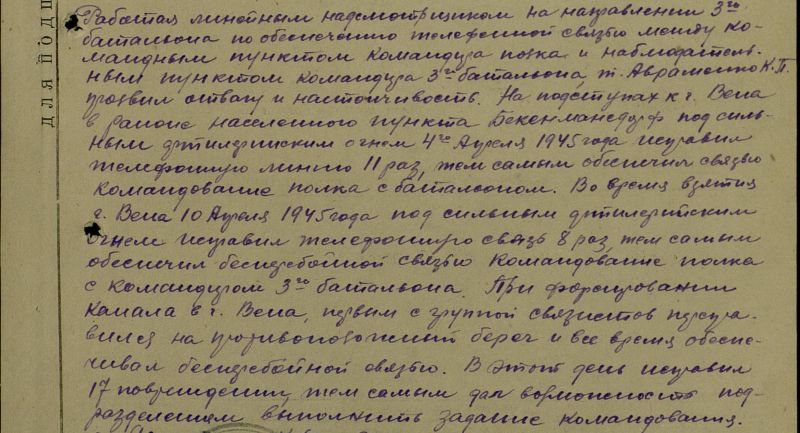 Работая линейным надсмотрщиком на направлении 3го
батальона по обеспечению телефонной связью между ко-
мандным пунктом командира полка и наблюдатель-
ным пунктом командира 3го батальона, т. Авраменко К.П.
проявил отвагу и настойчивость. На подступах к г. Вена
в районе населенного пункта Бекенмансдорф под силь-
ным артилерийским огнем 4го Апреля 1945 года исправил
телефонную линию 11 раз, тем самым обеспечил связью
командование полка с батальоном. Во время взятия
г. Вена 10 Апреля 1945 года под сильным артилерийским
огнем исправил телефонную связь 8 раз, тем самым
обеспечил бесперебойной связью командование полка
с командиром 3го батальона. При форсировании
канала в г. Вена, первым с группой связистов перепра-
вился на противоположный берег и все время обеспе-
чивал бесперебойной связью. В этот день исправил
17 повреждений, тем самым дал возможность под-
разделениям выполнить задание командования.
для подш